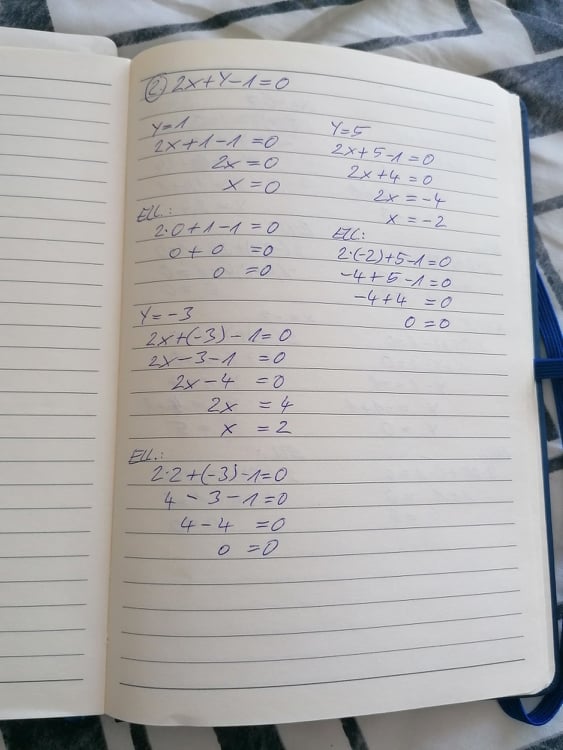 e) 2x+y-1=0
y=1
2x+1-1=0
2x=0
x=0
Ell.:
2·0+1-1=0
0+0=0
0=0
y=5
2x+5-1=0
2x+4=0
2x=-4
x=-2
Ell:
2·(-2)+5-1=0
-4+5-1=0
-4+4=0
0=0
y=-3
2x+(-3)-1=0
2x-3-1=0
2x-4=0
2x=4
x=2
Ell.:
2·2+(-3)-1=0
4-3-1=0
4-4=0
0=0